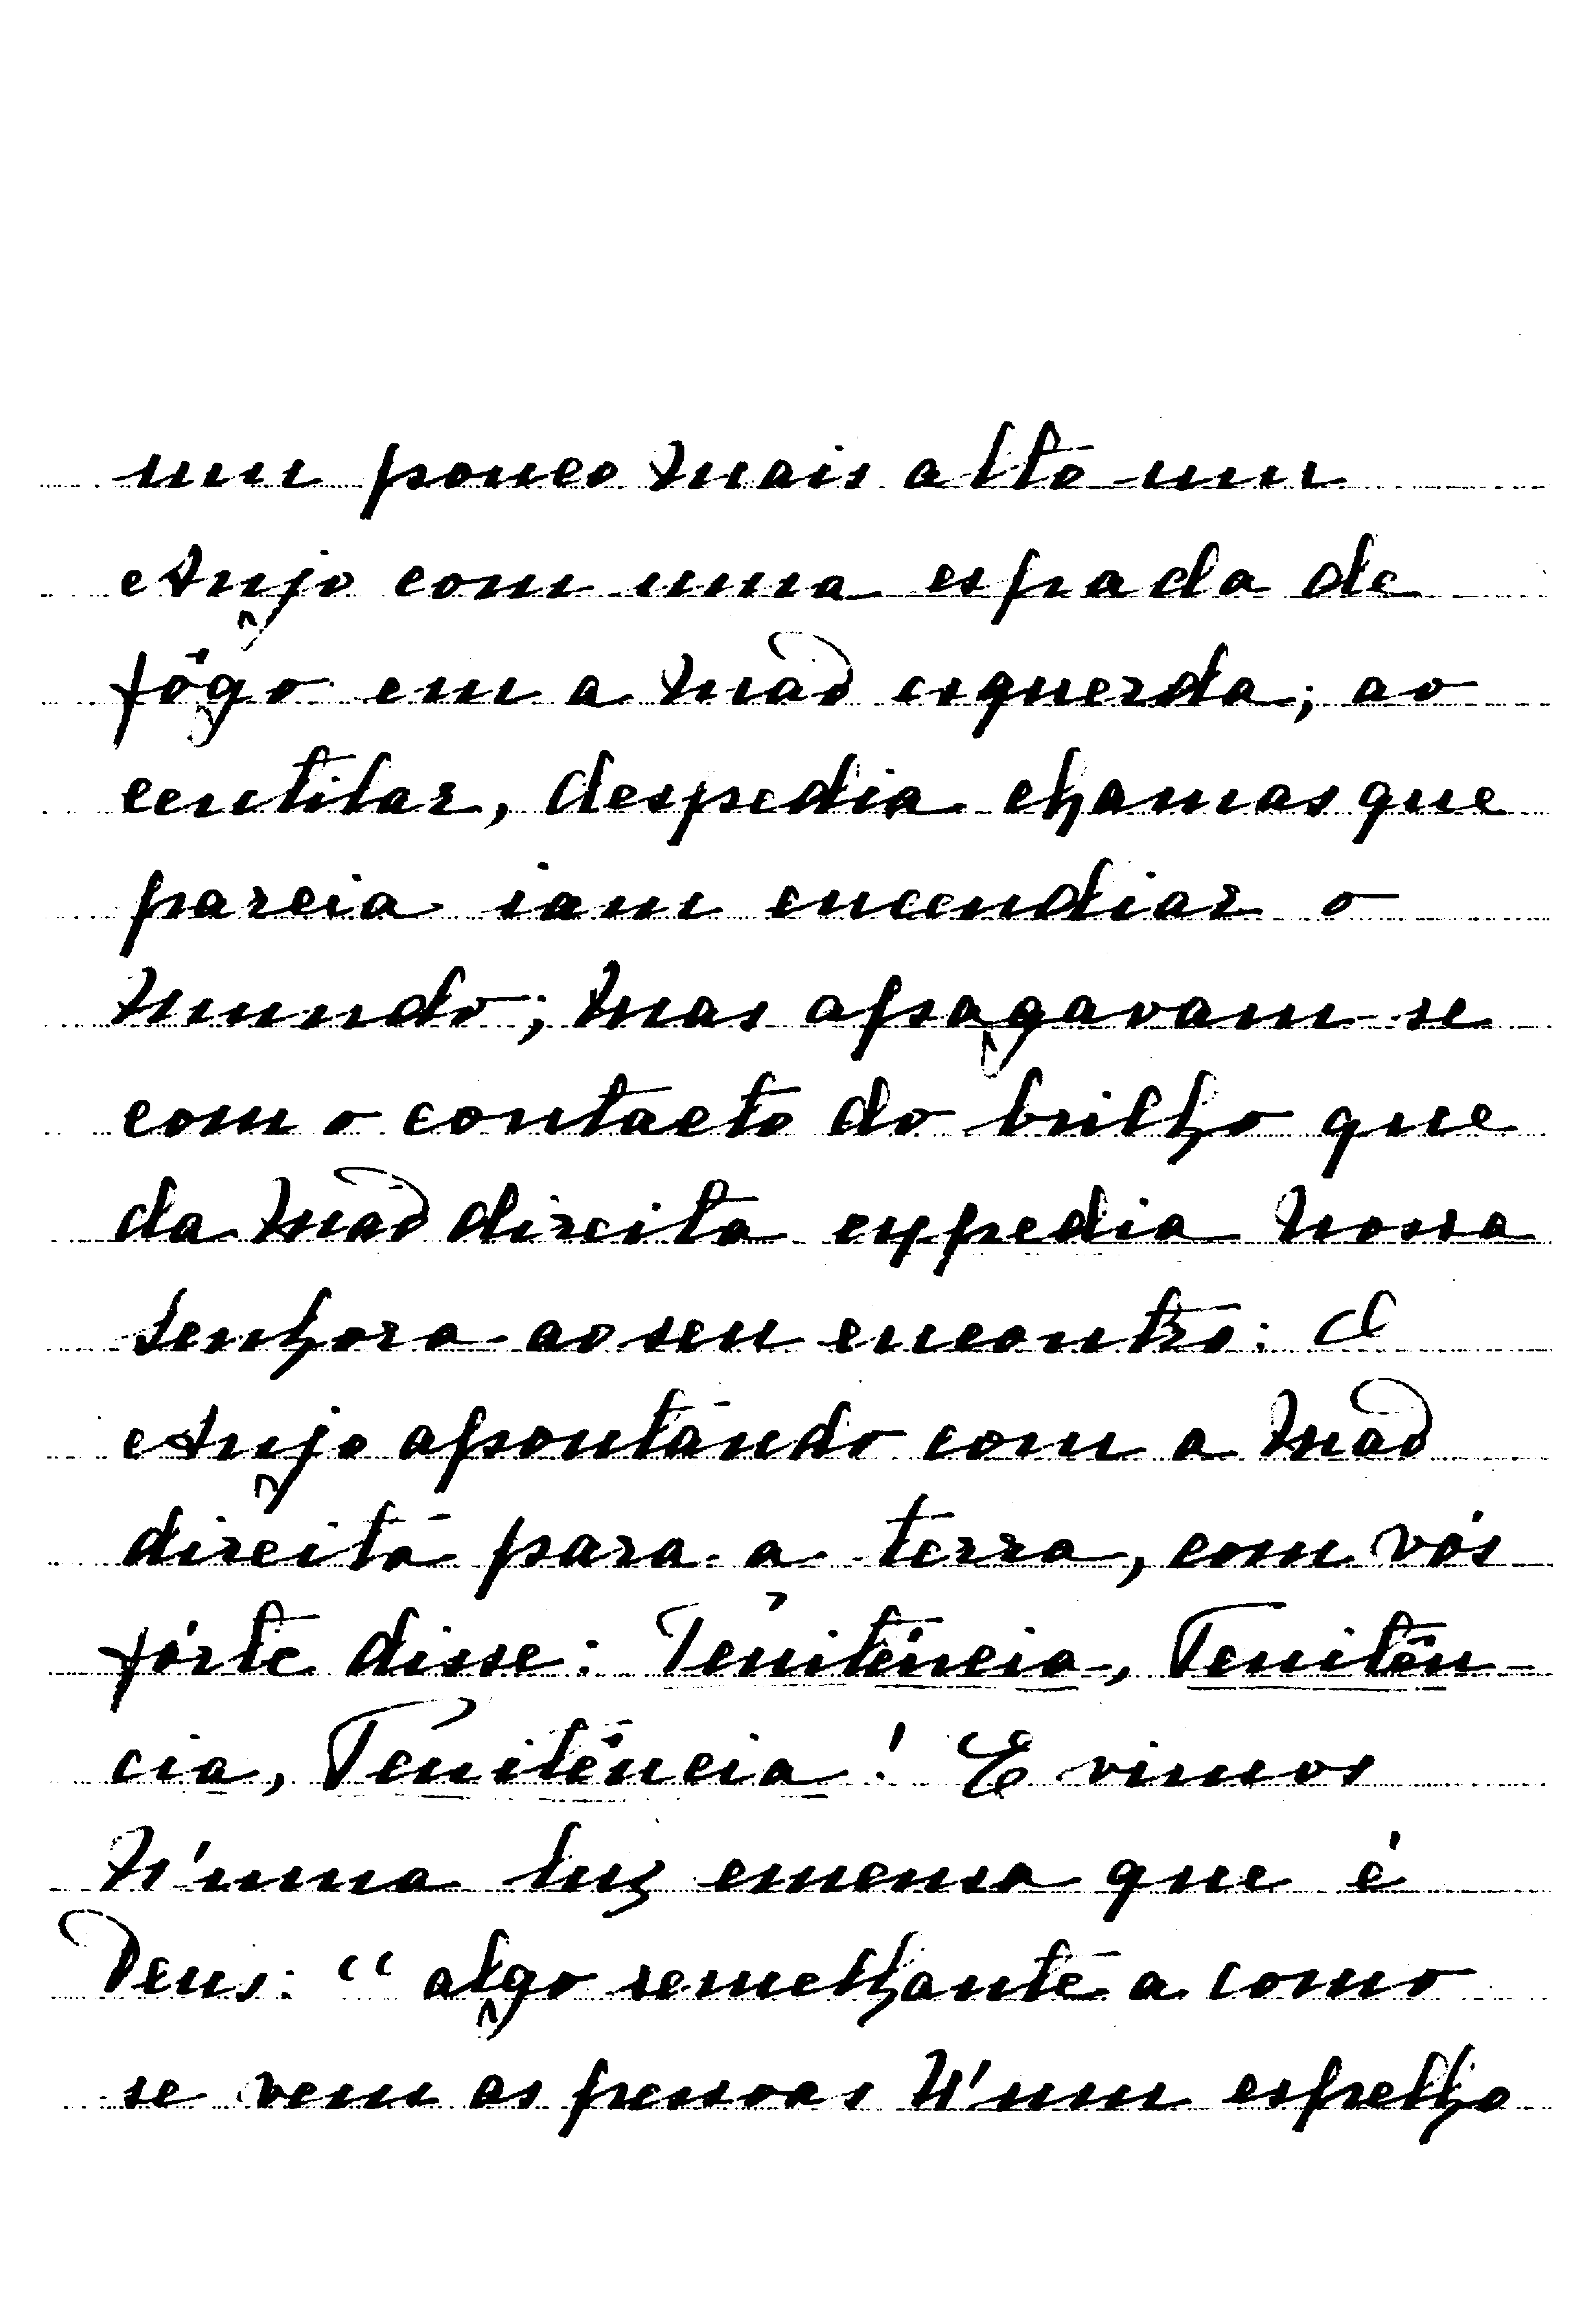 um pouco mais alto um
Anjo com uma espada de
fôgo em a mão esquerda; ao
centilar, despedia chamas que
parcia iam encendiar o
mundo; mas apagavam-se
com o contacto do brilho que
da mão direita expedia Nossa
Senhora ao seu encontro: O
Anjo apontando com a mão
direita para a terra, com vós
fórte disse: Penitência, Penitên-
cia, Penitência! E vimos
n'uma luz emensa que é
Deus: "algo semelhante a como
se vem as pessoas n'um espelho